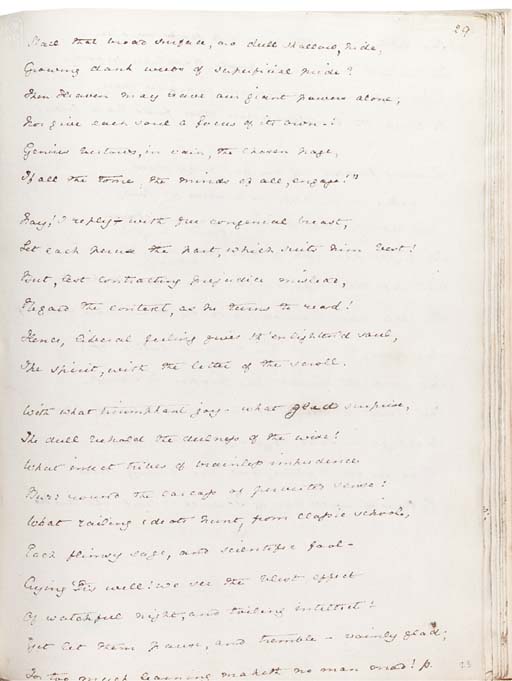 29
Shall that broad surface, no dull shallow, hide,
Growing dank weeds of superficial pride?
Then Heaven may leave our giant powers alone,
Nor give each soul a focus of its own!
Genius bestows, in vain, the chosen page,
If all the tome, the minds of all, engage!"
Nay! I reply – with free congenial breast,
Let each peruse the part, which suits him best!
But, lest contracting prejudice mislead,
Regard the context, as he turns to read!
Hence, liberal feeling gives th' enlighten'd soul,
The spirit, with the letter of the scroll.
With what triumphant joy – what glad surprise,
The dull behold the dulness of the wise!
What insect tribes of brainless impudence
Buzz round the carcass of perverted sense!
What railing ideots hunt, from classic schools,
Each flimsy sage, and scientific fool –
Crying 'Tis well! we see the blest effect
Of watchful night, and toiling intellect!
Yet let them pause, and tremble – vainly glad;
For too much learning maketh no man mad! p.
23